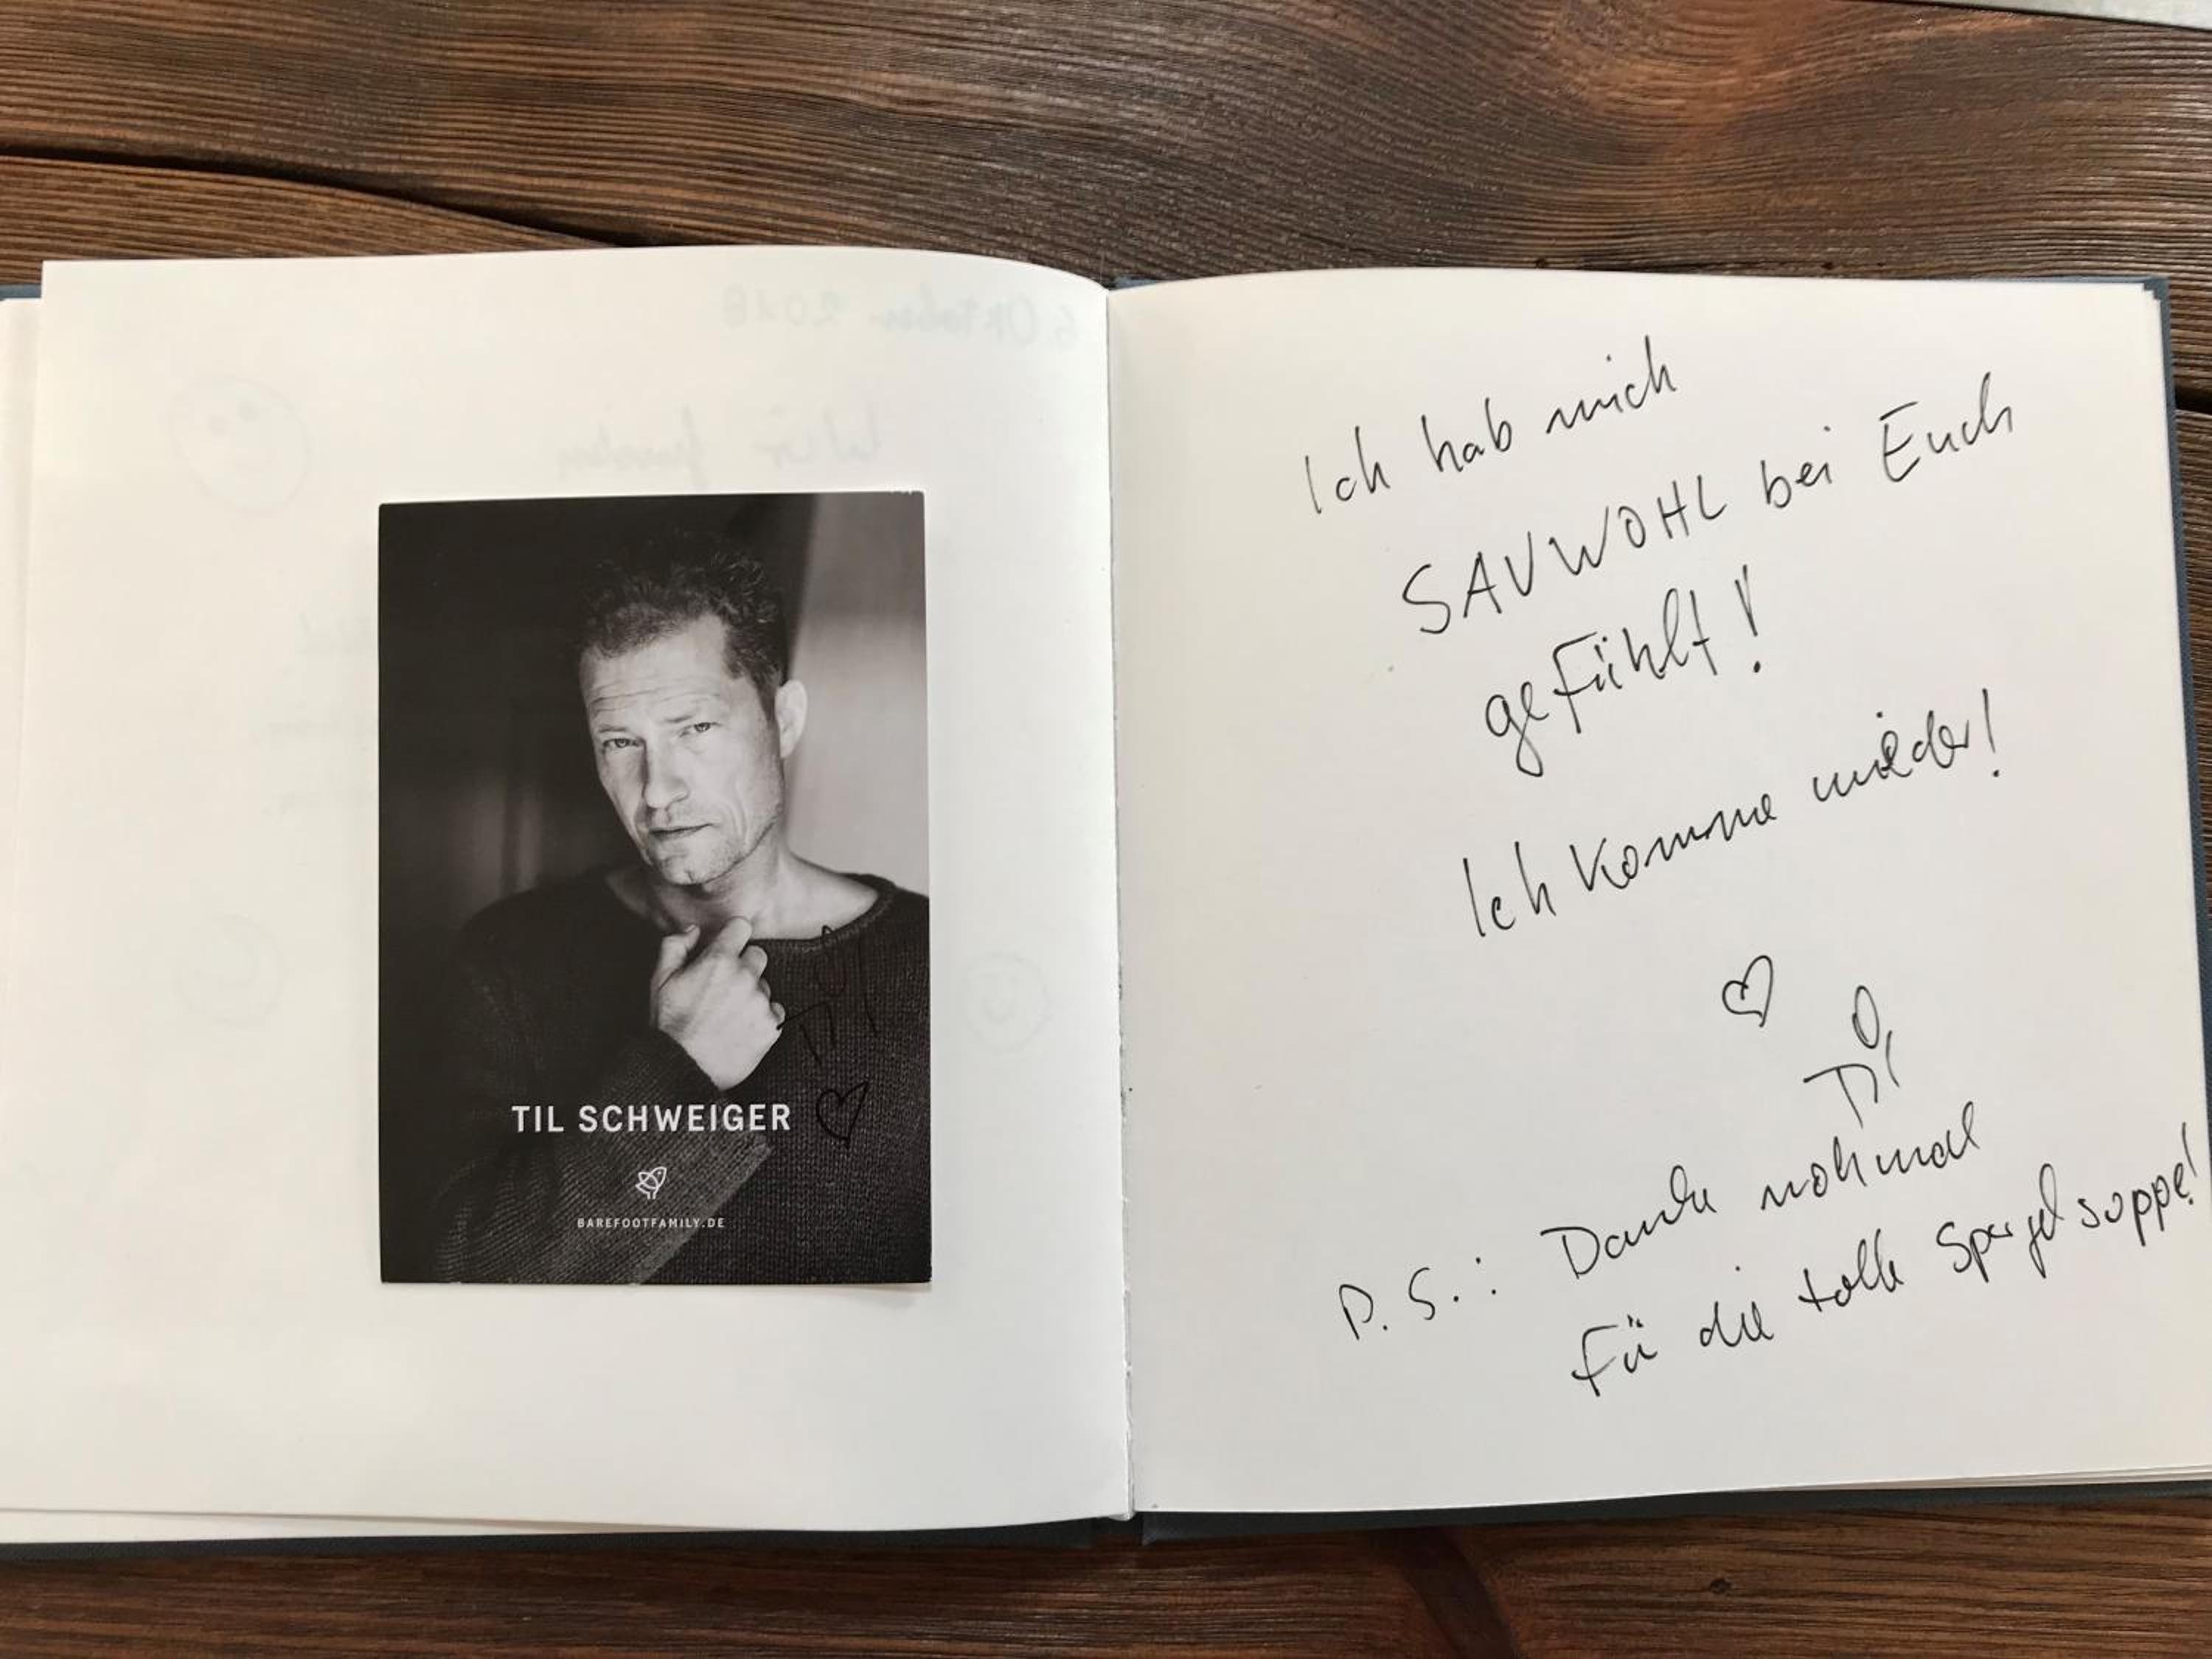 6. Oktober 2018
Wir
TIL SCHWEIGER
BAREFOOTFAMILY.DE
Til
Ich hab mich
SAUWOHL bei Euch
gefühlt!
Ich komme wieder!
Til
P.S.: Danke nohmal
Für die tolle Spargelsuppe!